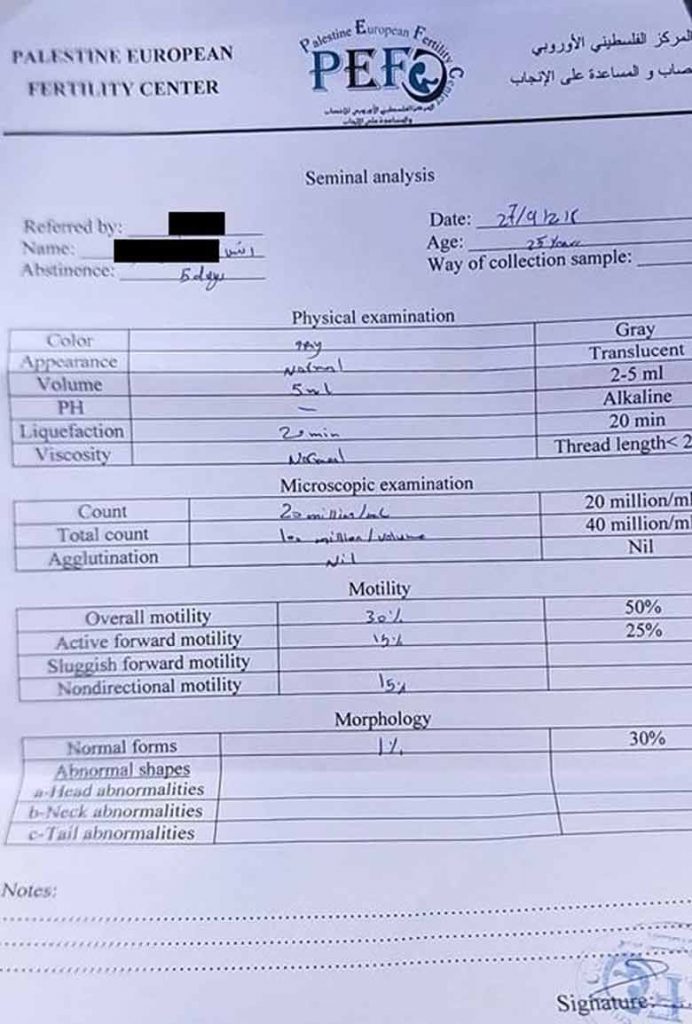 PALESTINE EUROPEAN
FERTILITY CENTER
Palestine European Fertility Center
PEFC
المركز الفلسطيني الأوروبي
صاب و المساعدة على الإنجاب
Seminal analysis
Referred by:
Name:
Abstinence: 5 days
Date: 27/9/
Age: 25 Years
Way of collection sample:
Physical examination
Color gray Gray
Appearance Normal Translucent
Volume 5ml 2-5 ml
PH — Alkaline
Liquefaction 20 min 20 min
Viscosity Normal Thread length< 2
Microscopic examination
Count 20 million/ml 20 million/ml
Total count 100 million/volume 40 million/ml
Agglutination Nil Nil
Motility
Overall motility 30% 50%
Active forward motility 15% 25%
Sluggish forward motility
Nondirectional motility 15%
Morphology
Normal forms 1% 30%
Abnormal shapes
a-Head abnormalities
b-Neck abnormalities
c-Tail abnormalities
Notes:
Signature: